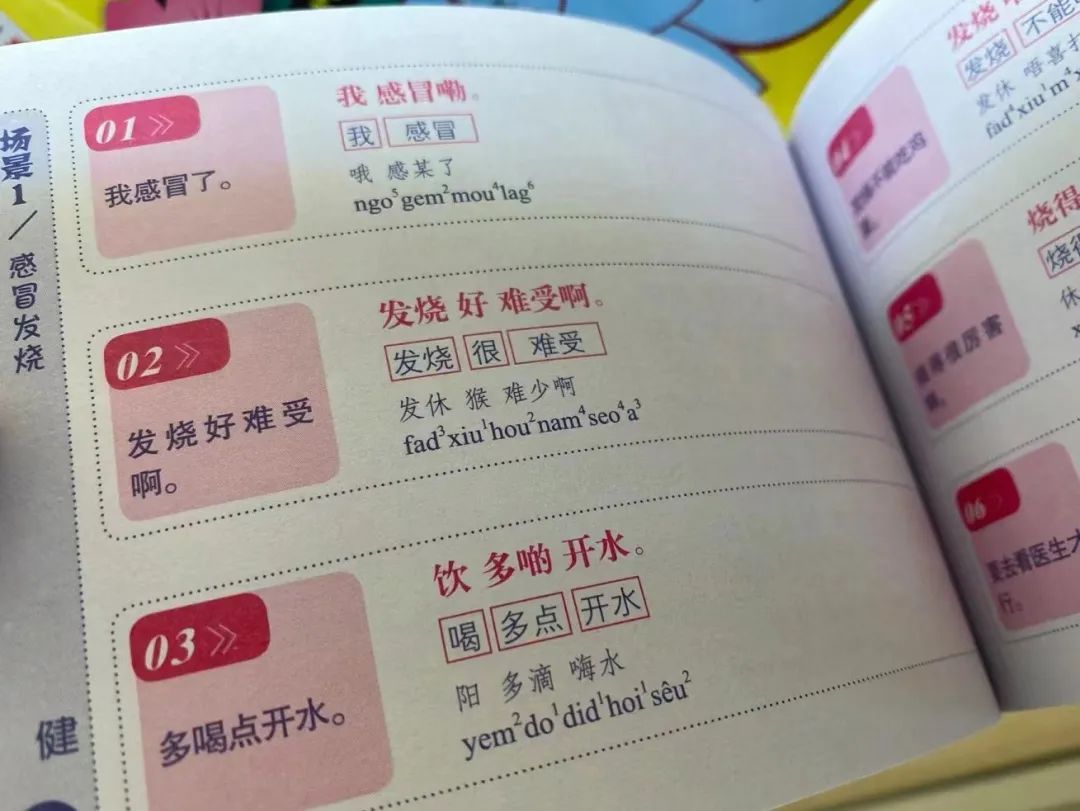 场景1/感冒发烧
健
01
我感冒了。
我 感冒嘞。
我 感冒
哦 感某了
ngo⁵gem²mou⁴lag⁶
02
发烧好难受
啊。
发烧 好 难受啊。
发烧 很 难受
发休 猴 难少啊
fad³xiu¹hou²nam⁴seo⁴a³
03
多喝点开水。
饮 多啲 开水。
喝 多点 开水
阳 多滴 嗨水
yem²do¹did¹hoi¹sêu²
04
发烧
发烧 不能
发休 唔喜打
fad⁴xiu¹m⁴x
05
烧得很厉害
烧得
烧得
休
06
要去看医生才
行。